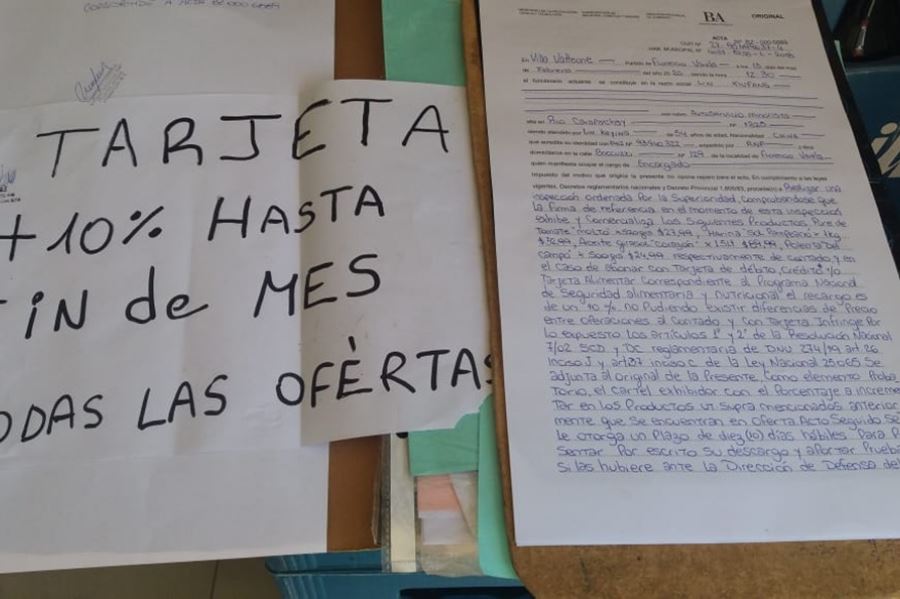 TARJETA
+10% HASTA
FIN de MES
ODAS LAS OFERTAS
BA
ORIGINAL
ACTA
En Villa Vatteone Partido de Florencio Varela a los 13 días del mes
de Febrero del año 2020 siendo la hora 12:30
el funcionario actuante se constituye en la razón social
con rubro Autoservicio Minorista
sito en Rio Carapachay Nº 1325
siendo atendido por de 54 años de edad. Nacionalidad China
que acredita su identidad con expedido por y dice
domiciliarse en la calle Nº 129 de la localidad de Florencio Varela
quien manifiesta ocupar el cargo de Encargado
Impuesto del motivo que origina la presente no opone reparo para el acto. En cumplimiento a las leyes
vigentes, Decretos reglamentarios nacionales y Decreto Provincial procedo a Realizar una
inspección ordenada Por la Superioridad, comprobándose que
la firma de referencia en el momento de esta inspección
exhibe y Comercializa los Siguientes Productos Pure de
Tomate
campo x 500grs $24,99 respectivamente de contado, y en
el caso de abonar con Tarjeta de débito, Crédito y/o
Tarjeta Alimentar Correspondiente al Programa Nacional
de Seguridad alimentaria y nutricional el recargo es
de un 10% no Pudiendo existir diferencias de Precio
entre Operaciones al Contado y con Tarjeta. Infringe Por
lo expuesto los artículos 1º y 2º de la Resolución Nacional
7/02 SCD y DC reglamentaria de DNU 274/19 art. 26
inciso J y art37 inciso C de la Ley Nacional 25065 Se
adjunta al original de la Presente, como elemento Proba
Torio, el Cartel exhibidor con el Porcentaje a increme
Tar en los Productos ut supra mencionados anterior
mente que se encuentran en oferta. Acto Seguido Se
le otorga un Plazo de diez (10) días hábiles Para P
sentar Por escrito su descargo y aportar Prueba
Si las hubiere ante la Dirección de Defensa del